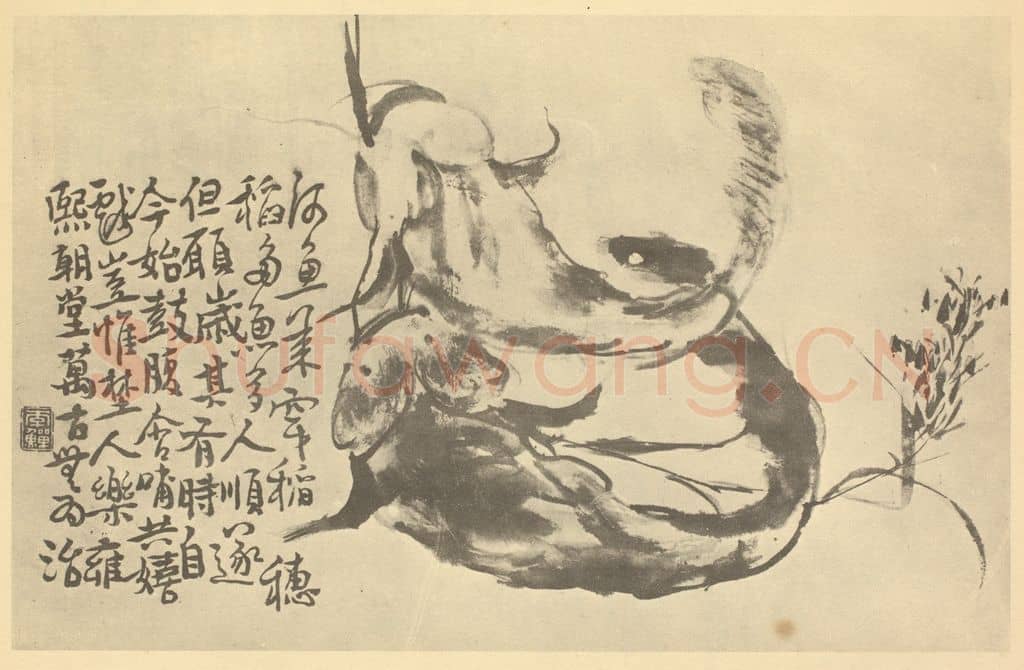 河魚一束穿稻穗
稻多魚多人順遂
但願歲其有時自
今始鼓腹含哺共嬉
戲豈惟埜人樂雍
熙朝堂萬古無為治
李鱓
Shufawang.CN